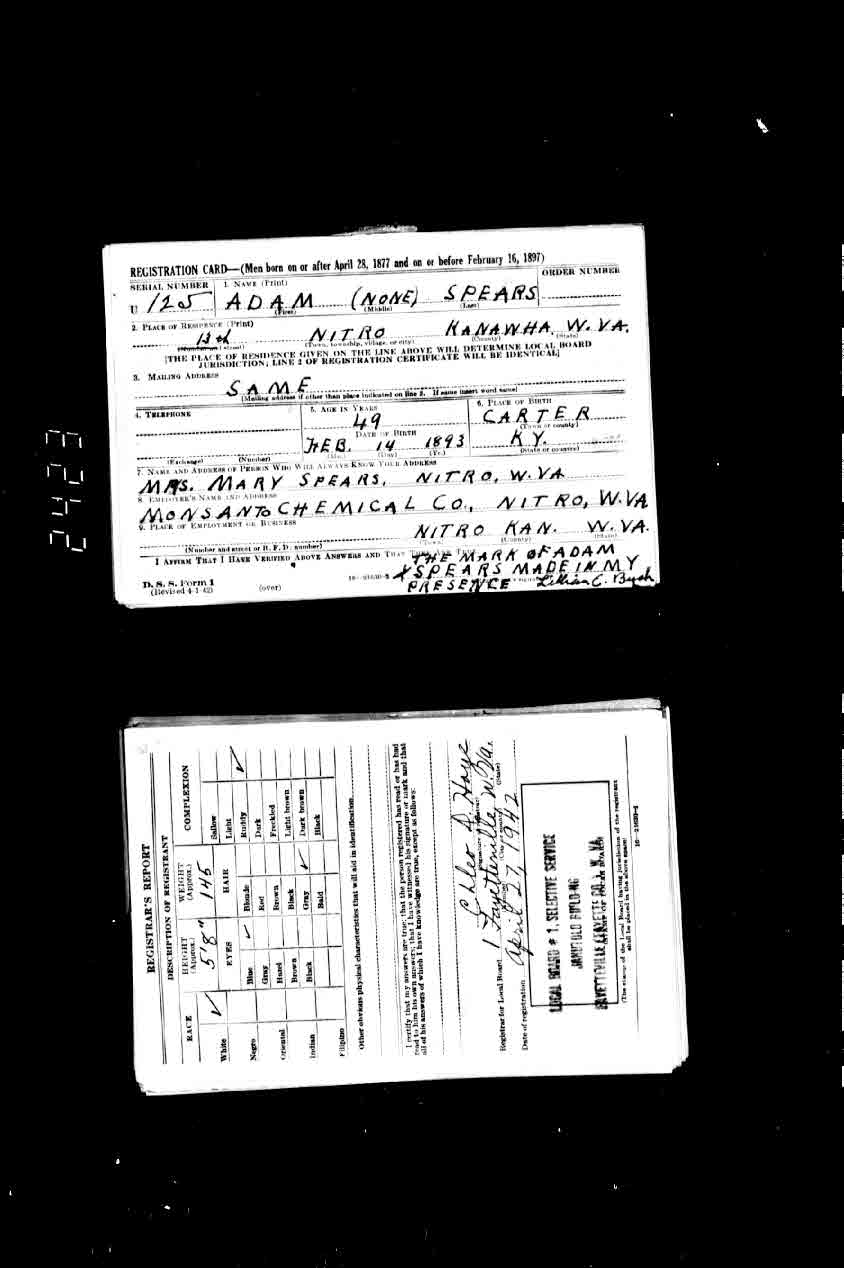 REGISTRATION CARD—(Men born on or after April 28, 1877 and on or before February 16, 1897)
SERIAL NUMBER 1. NAME (Print) ORDER NUMBER
U 125 ADAM (NONE) SPEARS
(First) (Middle) (Last)
2. PLACE OF RESIDENCE (Print)
13th NITRO KANAWHA W. VA.
(Number and street) (Town, township, village, or city) (County) (State)
[THE PLACE OF RESIDENCE GIVEN ON THE LINE ABOVE WILL DETERMINE LOCAL BOARD
JURISDICTION; LINE 2 OF REGISTRATION CERTIFICATE WILL BE IDENTICAL]
3. MAILING ADDRESS
SAME
[Mailing address if other than place indicated on line 2. If same insert word same]
4. TELEPHONE 5. AGE IN YEARS 6. PLACE OF BIRTH
49 CARTER
DATE OF BIRTH (Town or county)
FEB. 14 1893 KY.
(Exchange) (Number) (Mo.) (Day) (Yr.) (State or country)
7. NAME AND ADDRESS OF PERSON WHO WILL ALWAYS KNOW YOUR ADDRESS
MRS. MARY SPEARS, NITRO, W.VA
8. EMPLOYER'S NAME AND ADDRESS
MONSANTO CHEMICAL CO., NITRO, W.VA
9. PLACE OF EMPLOYMENT OR BUSINESS
NITRO KAN. W. VA.
(Number and street or R. F. D. number) (Town) (State)
I AFFIRM THAT I HAVE VERIFIED ABOVE ANSWERS AND THAT
THE MARK OF ADAM
X SPEARS MADE IN MY
PRESENCE Lillian C. Bush
D. S. S. Form 1
(Revised 4-1-42) (over) 16—21630-2
2423
REGISTRAR'S REPORT
DESCRIPTION OF REGISTRANT
RACE HEIGHT (Approx.) WEIGHT (Approx.) COMPLEXION
✓ 5'8" 145
EYES HAIR
White Blue ✓ Blonde Sallow
Light
Negro Gray Red Ruddy ✓
Hazel Brown Dark
Oriental Brown Black Freckled
Black Gray ✓ Light brown
Indian Bald Dark brown
Black
Filipino
Other obvious physical characteristics that will aid in identification
I certify that my answers are true; that the person registered has read or has had
read to him his own answers; that I have witnessed his signature or mark and that
all of his answers of which I have knowledge are true, except as follows:
Registrar for Local Board 1 Fayetteville W. Va.
(State)
Date of registration April 27, 1942
LOCAL BOARD # 1, SELECTIVE SERVICE
FAYETTEVILLE FAYETTE CO., W. VA.
(The stamp of the Local Board having jurisdiction of the registrant
shall be placed in the above space)
16—21630-2